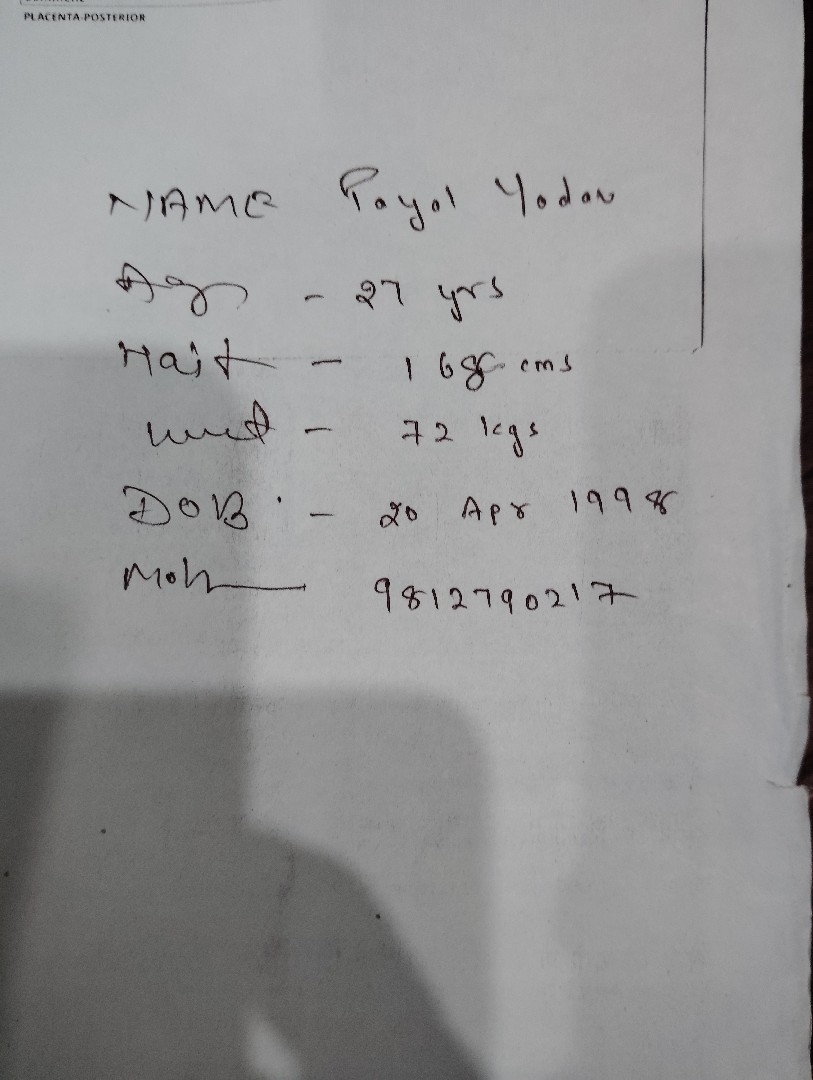 PLACENTA-POSTERIOR
NAME Payal Yadav
Age - 27 yrs
Hait - 168 cms
- 72 kgs
DOB - 20 Apr 1998
Mob 9812790217